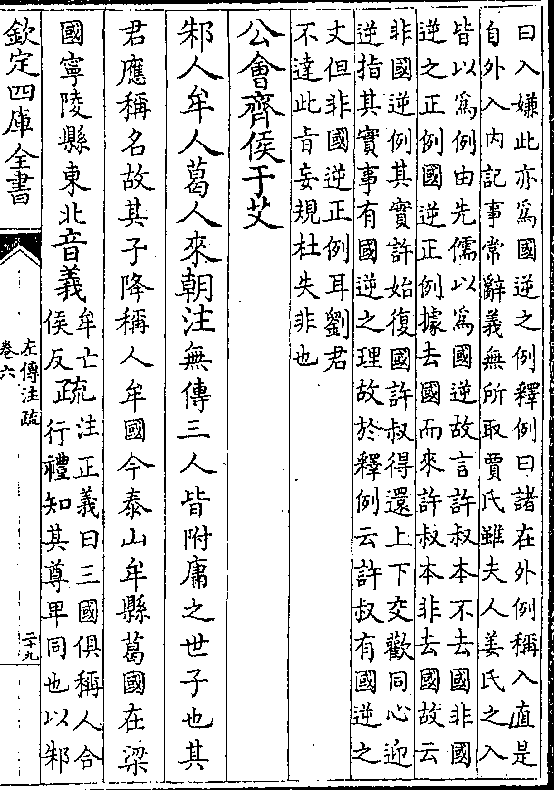 曰入嫌此亦爲國逆之例釋例曰諸在外例稱入直是
自外入内記事常辭義無所取賈氏雖夫人姜氏之入
皆以爲例由先儒以爲國逆故言許叔本不去國非國
逆之正例國逆正例據去國而來許叔本非去國故云
非國逆例其實許始復國許叔得還上下交歡同心迎
逆指其實事有國逆之理故於釋例云許叔有國逆之
丈但非國逆正例耳劉君
不達此旨妄規杜失非也
公會齊侯于艾
邾人牟人葛人來朝注無傳三人皆附庸之世子也其
君應稱名故其子降稱人牟國今泰山牟縣葛國在梁
國寧陵縣東北音義
牟亡
侯反
疏注正義曰三國俱稱人合
正行禮知其尊卑同也以邾
欽定四庫全書
左傳注疏
卷六
二十九